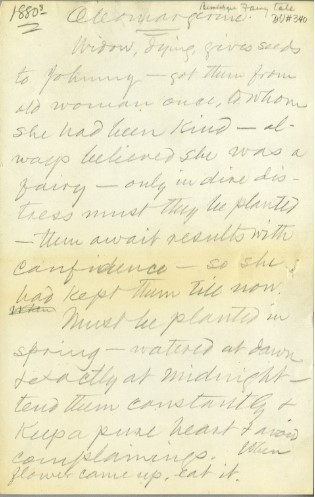 1880s
Burlesque Fairy tale
DV#340
Oleomargarine.
Widow, dying, gives seeds
to Johnny — got them from
old woman once, to whom
she had been kind — al-
ways believed she was a
fairy — only in dire dis-
tress must they be planted
— then await results with
confidence — so she
had kept them till now.
Must be planted in
spring — watered at dawn
& exactly at midnight —
tend them constantly &
keep a pure heart & avoid
complainings. When
flower came up, eat it.